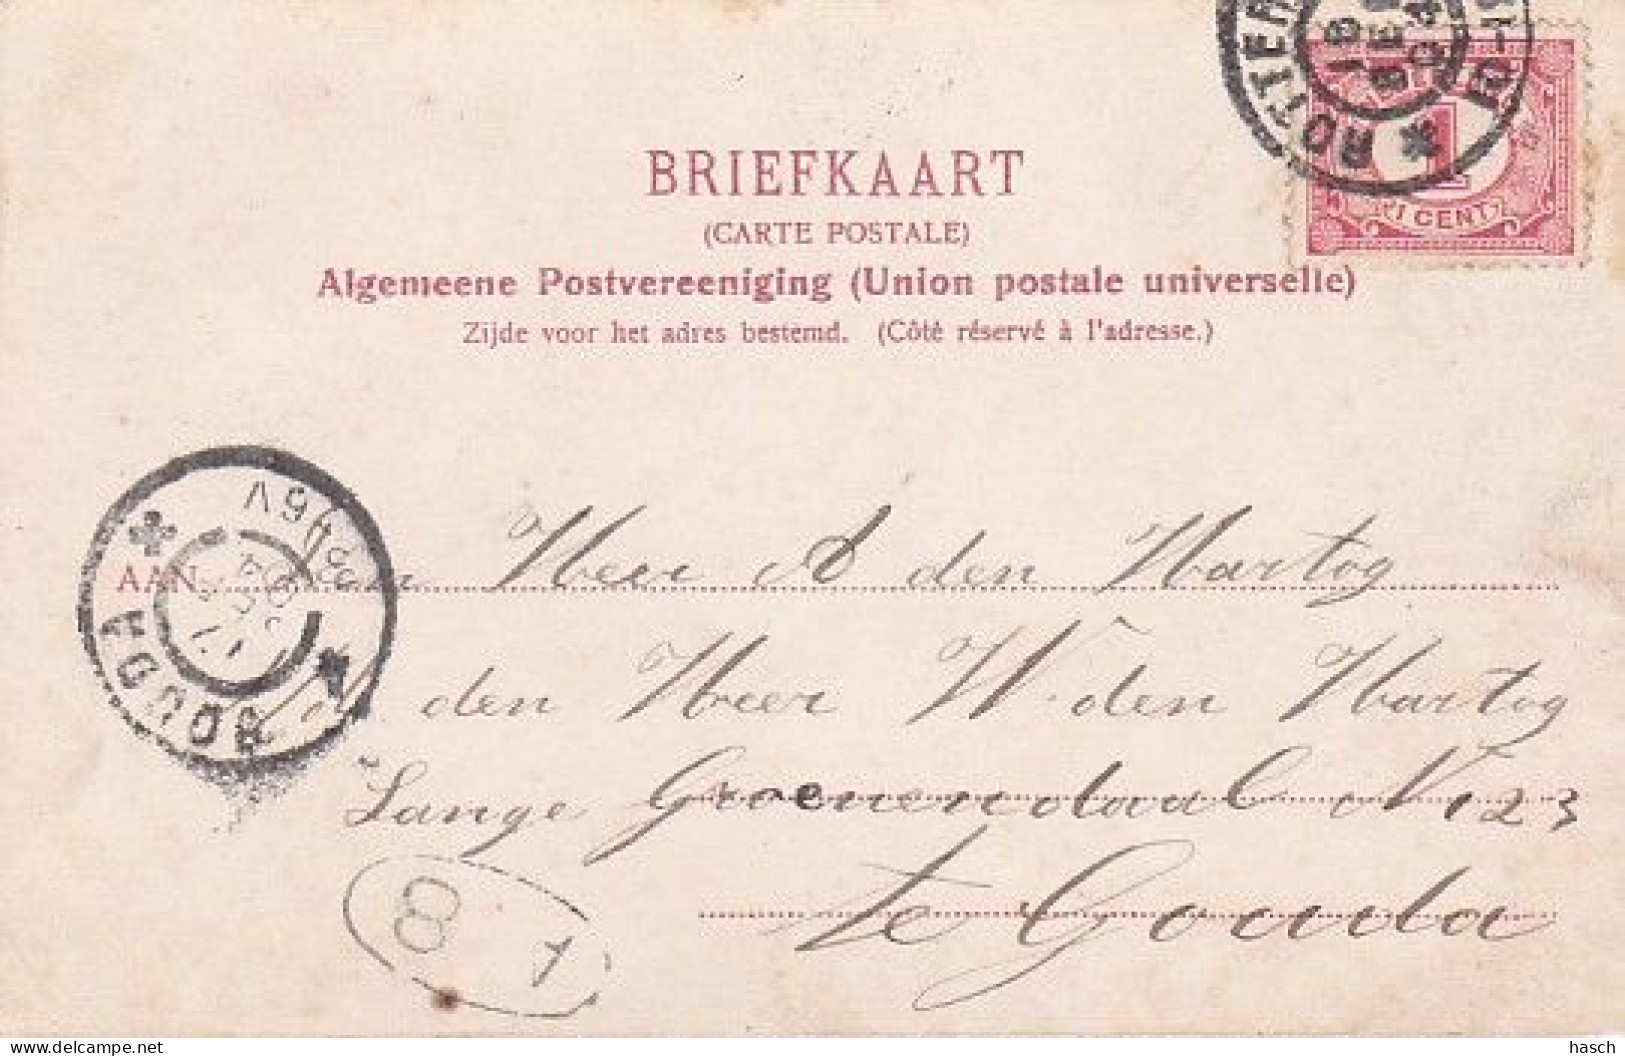 ROTTER
10-1
1 CENT
BRIEFKAART
(CARTE POSTALE)
Algemeene Postvereeniging (Union postale universelle)
Zijde voor het adres bestemd. (Côté réservé à l'adresse.)
GOUDA
AAN
Heer A den Hartog
den Heer W. den Hartog
Lange Groenendaal N 123
te Gouda
8 1
hasch